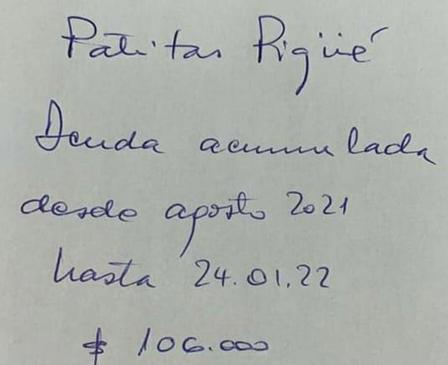 Patitas Pigüé
Deuda acumulada
desde agosto 2021
hasta 24.01.22
$ 106.000